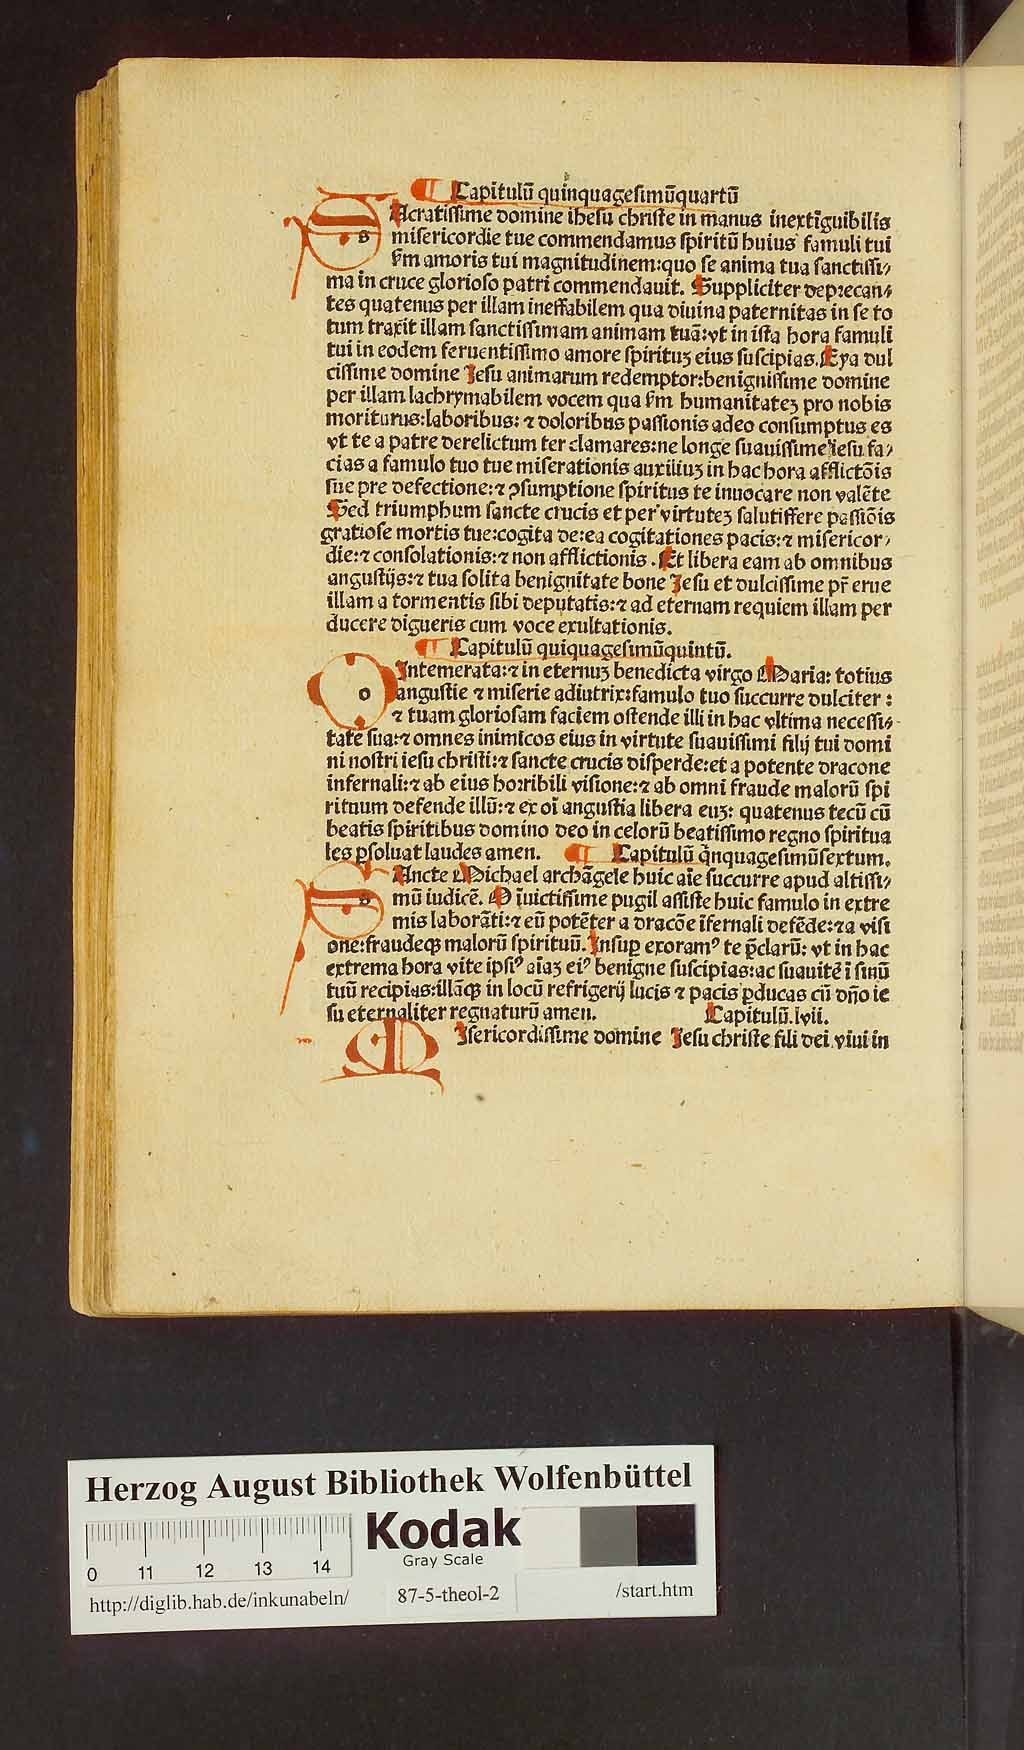 Capitulū quinquagesimūquartū
SAcratissime domine ihesu christe in manus inextīguibilis
misericordie tue commendamus spiritū huius famuli tui
scḋm amoris tui magnitudinem:quo se anima tua sanctissi⸗
ma in cruce glorioso patri commendauit. Suppliciter deprecan⸗
tes quatenus per illam ineffabilem qua diuina paternitas in se to
tum traxit illam sanctissimam animam tuā:vt in ista hora famuli
tui in eodem feruentissimo amore spirituʒ eius suscipias. Eya dul
cissime domine Jesu animarum redemptor:benignissime domine
per illam lachrymabilem vocem qua scḋm humanitateʒ pro nobis
moriturus:laboribus: ⁊ doloribus passionis adeo consumptus es
vt te a patre derelictum ter clamares:ne longe suauissime iesu fa⸗
cias a famulo tuo tue miserationis auxiliuʒ in hac hora afflictōis
sue pre defectione:⁊ ꝯsumptione spiritus te inuocare non valēte
Sed triumphum sancte crucis et per virtuteʒ salutiffere passiōis
gratiose mortis tue:cogita de:ea cogitationes pacis:⁊ misericor⸗
die:⁊ consolationis:⁊ non afflictionis. Et libera eam ab omnibus
angustijs:⁊ tua solita benignitate bone Jesu et dulcissime pr̄ erue
illam a tormentis sibi deputatis:⁊ ad eternam requiem illam per
ducere digneris cum voce exultationis.
Capitulū quiquagesimūquintū.
O Intemerata:⁊ in eternuʒ benedicta virgo Maria: totius
angustie ⁊ miserie adiutrix:famulo tuo succurre dulciter:
⁊ tuam gloriosam faciem ostende illi in hac vltima necessi⸗
tate sua:⁊ omnes inimicos eius in virtute suauissimi filij tui domi
ni nostri iesu christi:⁊ sancte crucis disperde:et a potente dracone
infernali:⁊ ab eius horribili visione:⁊ ab omni fraude malorū spi
rituum defende illū:⁊ ex oī angustia libera euʒ: quatenus tecū cū
beatis spiritibus domino deo in celorū beatissimo regno spiritua
les psoluat laudes amen. Capitulū q̄nquagesimūsextum.
SAncte Michael archāgele huic aīe succurre apud altissi⸗
mū iudicē. O īuictissime pugil assiste huic famulo in extre
mis laborāti:⁊ eū potēter a dracōe īfernali defēde:⁊ a visi
one:fraudeqꝫ malorū spirituū. Insuꝑ exoramꝰ te p̄clarū: vt in hac
extrema hora vite ipsiꝰ aīaʒ eiꝰ benigne suscipias:ac suauitē ī sinū
tuū recipias:illāqꝫ in locū refrigerij lucis ⁊ pacis ꝑducas cū dño ie
su eternaliter regnaturū amen. Capitulū.lvii.
MIsericordissime domine Jesu christe fili dei viui in
Herzog August Bibliothek Wolfenbüttel
Kodak
Gray Scale
0 11 12 13 14
http://diglib.hab.de/inkunabeln/ 87-5-theol-2 /start.htm